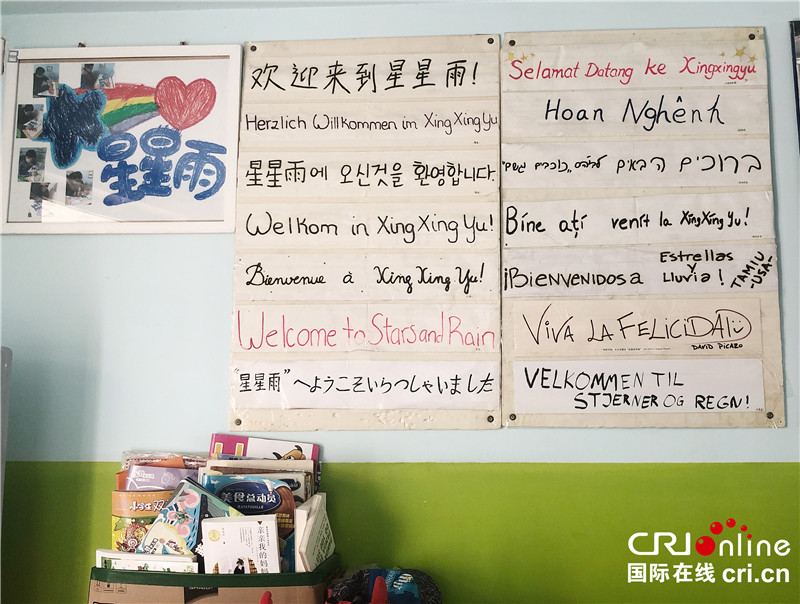 星星雨
欢迎来到星星雨!
Herzlich Willkommen im XingXingYu
星星雨에 오신것을 환영합니다.
Welkom in XingXingYu!
Bienvenue à Xing Xing Yu!
Welcome to Stars and Rain
"星星雨"へようこそいらつしゃいました
Selamat Datang ke Xingxingyu
Hoan Nghênh
ברוכים הבאים
Bine ați venit la XingXingYu!
¡Bienvenidos a Estrellas y Lluvia!
TAMIU -USA-
VIVA LA FELICIDAD
DAVID PICAZO
VELKOMMEN TIL
STJERNER OG REGN!
美食总动员
RATATOUILLE
亲亲我的妈妈
CRI Online
国际在线 cri.cn